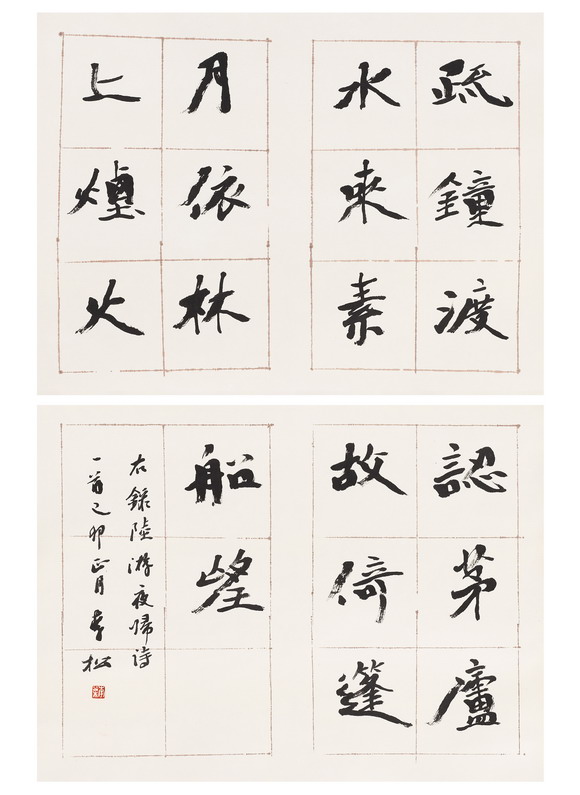 疏鐘渡
水來素
月依林
上煙火
認茅廬
故倚篷
船望
右錄陸游夜歸詩
一首己卯正月松